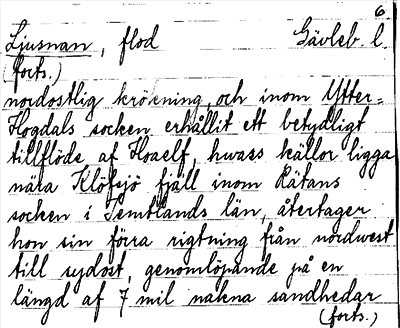 6.
Ljusnan, flod Gävleb. l.
(forts.)
nordostlig krökning, och inom Ytter-
Hogdals socken erhållit ett betydligt
tillflöde af Hoaelf, hwass källor ligga
nära Klöfsjö fjäll inom Rätans
socken i Jemtlands län, återtager
hon sin förra rigtning från nordwest
till sydost, genomlöpande på en
längd af 7 mil nakna sandhedar
(forts.)